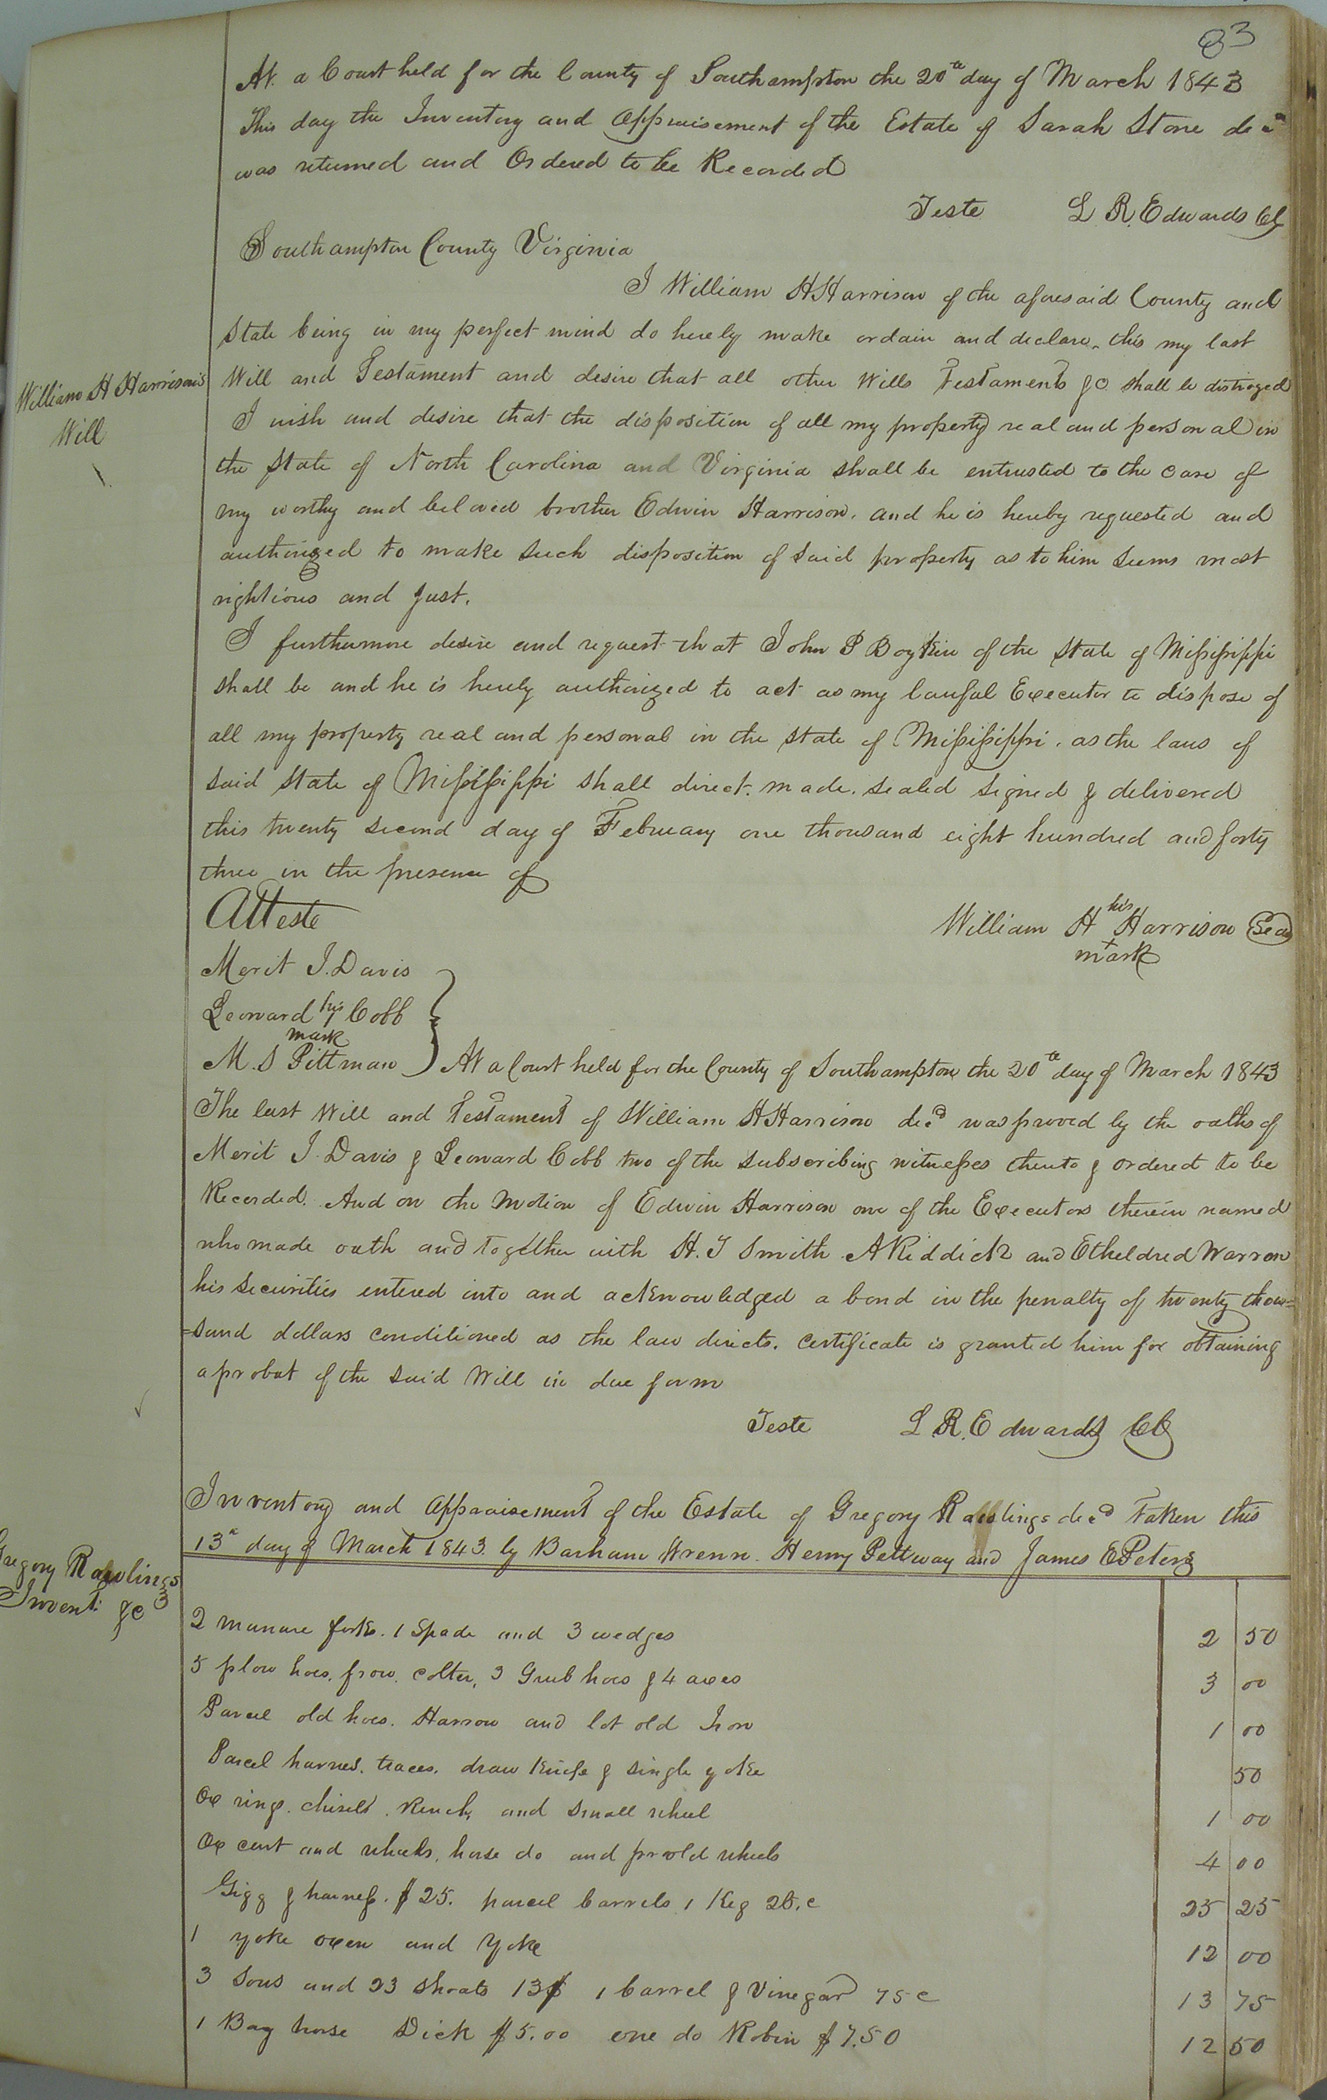 83
At a Court held for the County of Southampton the 20th day of March 1843
This day the Inventory and Appraisement of the Estate of Sarah Stone decd
was returned and Ordered to be Recorded
Teste L R. Edwards Cl
Southampton County Virginia
I William H Harrison of the aforesaid County and
State being in my perfect mind do hereby make ordain and declare this my last
William H Harrison's
Will
Will and Testament and desire that all other Wills Testaments &c shall be distroyed
I wish and desire that the disposition of all my property real and personal in
the State of North Carolina and Virginia shall be entrusted to the care of
my worthy and beloved brother Edwin Harrison. and he is hereby requested and
authorized to make such disposition of said property as to him seems most
rightious and just.
I furthermore desire and request that John P Boykin of the State of Mississippi
shall be and he is hereby authorized to act as my lawful Executor to dispose of
all my property real and personal in the State of Mississippi. as the laws of
said State of Mississippi shall direct. made. sealed signed & delivered
this twenty second day of February one thousand eight hundred and forty
three in the presence of
Atteste
William H his Harrison Seal
+ mark
Merit J. Davis
Leonard his Cobb
mark
M. S Pittman
At a Court held for the County of Southampton the 20th day of March 1843
The last Will and Testament of William H Harrison decd was proved by the oaths of
Merit J. Davis & Leonard Cobb two of the subscribing witnesses thereto & ordered to be
Recorded. And on the Motion of Edwin Harrison one of the Executors therein named
who made oath and together with H. T Smith A Riddick and Etheldred Warren
his securities entered into and acknowledged a bond in the penalty of twenty thou=
=sand dollars conditioned as the law directs. Certificate is granted him for obtaining
a probat of the said Will in due form
Teste L R. Edwards CC
Gregory Rawlings
Invent: &c
Inventory and Appraisement of the Estate of Gregory Rawlings decd Taken this
13th day of March 1843. by Barham Wrenn. Henry Pettway and James E Peters
2 manure forks. 1 Spade and 3 wedges 2 50
5 plow hoes, frow. colter, 3 Grub hoes & 4 axes 3 00
Parcel old hoes. Harrow and lot old Iron 1 00
Parcel harness. traces. draw knife & single yoke 50
Ox rings. chisels. and small wheel 1 00
Ox cart and wheels, horse do and pr old wheels 4 00
Gigg & harness. $25. parcel barrels 1 Keg 25.c 25 25
1 yoke oxen and Yoke 12 00
3 Sows and 23 Shoats 13$ 1 barrel & Vinegar 75 c 13 75
1 Bay horse Dick $5.00 one do Robin $7.50 12 50